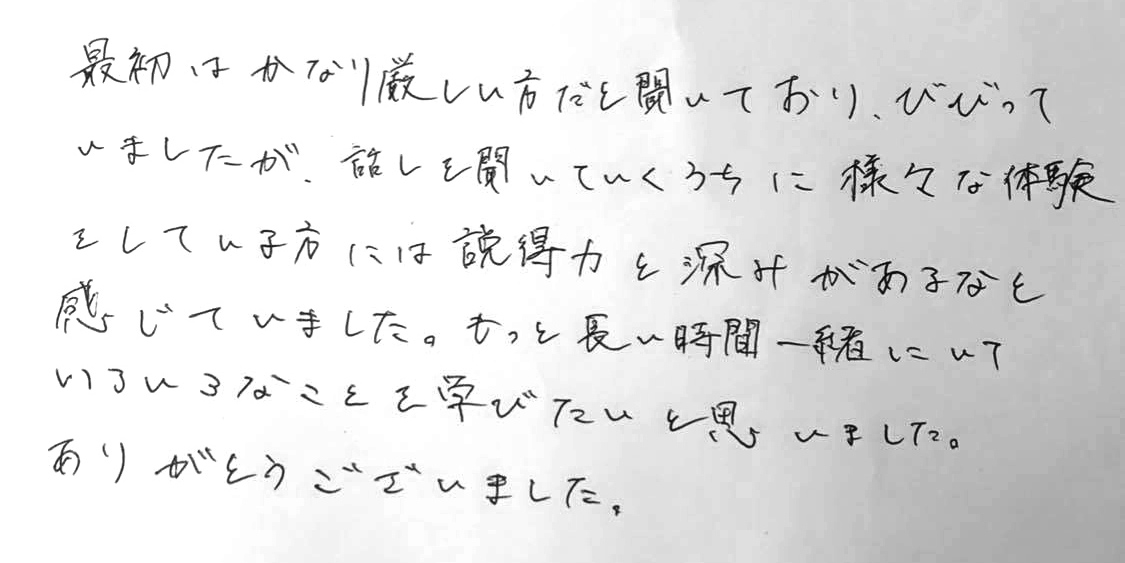 最初はかなり厳しい方だと聞いており、びびって
いましたが、話しを聞いていくうちに様々な体験
をしている方には説得力と深みがあるなと
感じていました。もっと長い時間一緒にいて
いろいろなことを学びたいと思いました。
ありがとうございました。